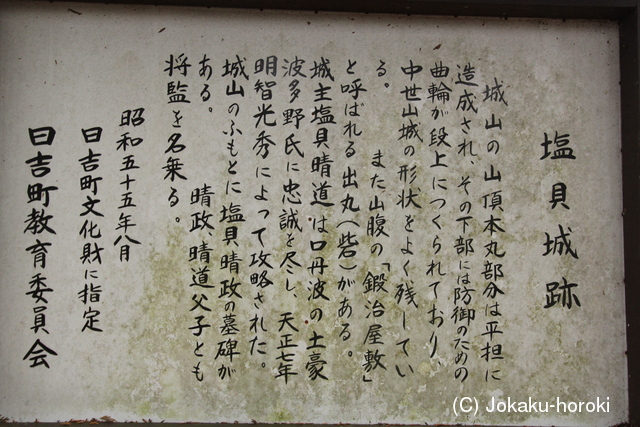 塩貝城跡
城山の山頂本丸部分は平担に
造成され、その下部には防御のための
曲輪が段上につくられており、
中世山城の形状をよく残してい
る。　また山腹の「鍛冶屋敷」
と呼ばれる出丸(砦)がある。
城主塩貝晴道は口丹波の土豪
波多野氏に忠誠を尽し、天正七年
明智光秀によって攻略された。
城山のふもとに塩貝晴政の墓碑が
ある。　晴政、晴道父子とも
将監を名乗る。
昭和五十五年八月
日吉町文化財に指定
日吉町教育委員会
(C) Jokaku-horoki